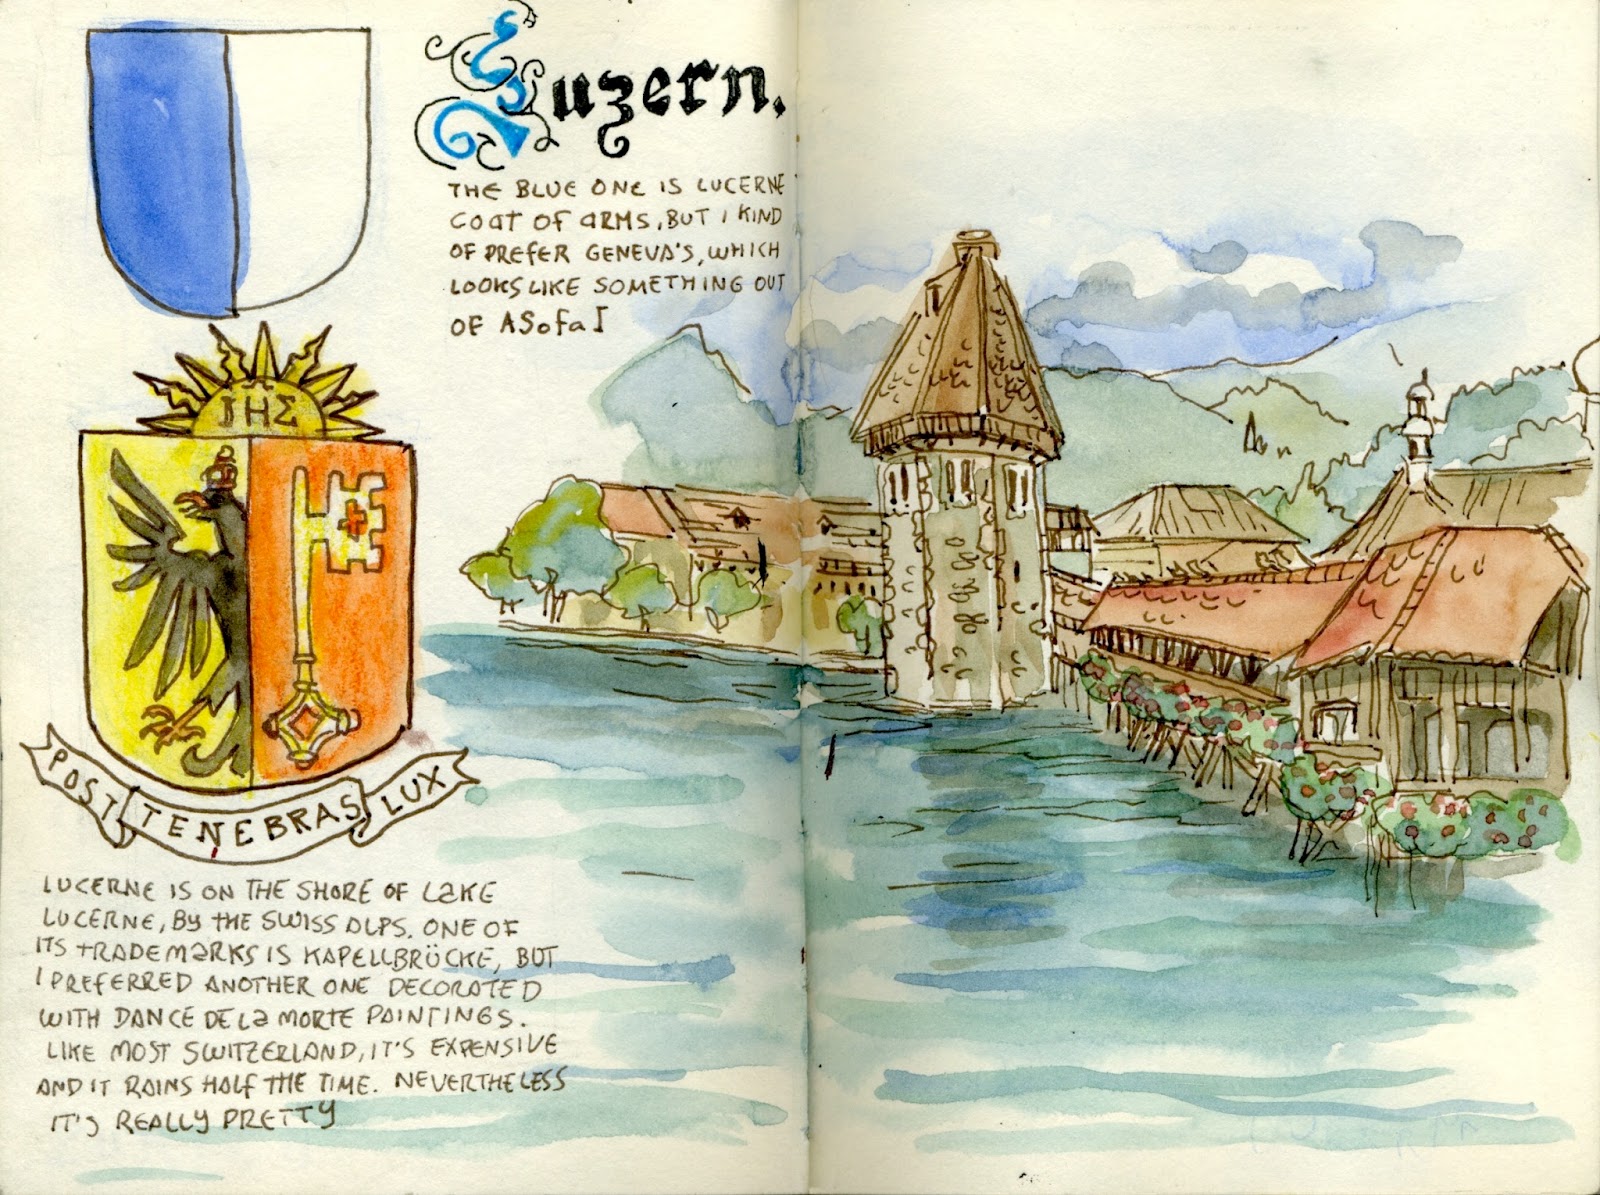 Luzern.
THE BLUE ONE IS LUCERNE
COAT OF ARMS, BUT I KIND
OF PREFER GENEVA'S, WHICH
LOOKS LIKE SOMETHING OUT
OF ASofaI
IHΣ
POST TENEBRAS LUX
LUCERNE IS ON THE SHORE OF LAKE
LUCERNE, BY THE SWISS ALPS. ONE OF
ITS TRADEMARKS IS KAPELLBRÜCKE, BUT
I PREFERRED ANOTHER ONE DECORATED
WITH DANCE DE LA MORTE PAINTINGS.
LIKE MOST SWITZERLAND, IT'S EXPENSIVE
AND IT RAINS HALF THE TIME. NEVERTHELESS
IT'S REALLY PRETTY